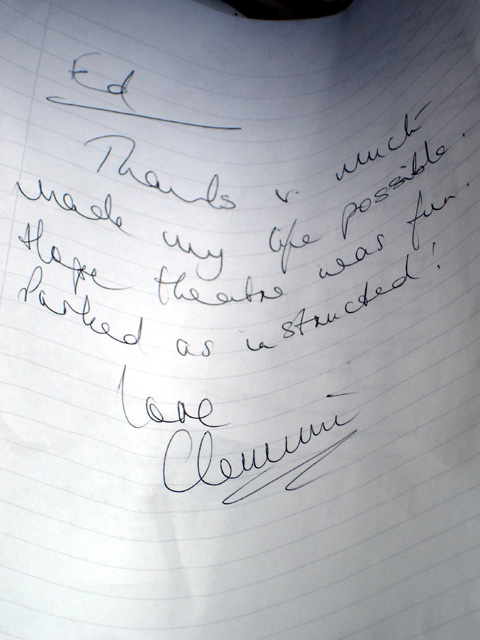 Ed
Thanks v. much
made my life possible.
Hope theatre was fun.
Parked as instructed!
Love
Clemmi